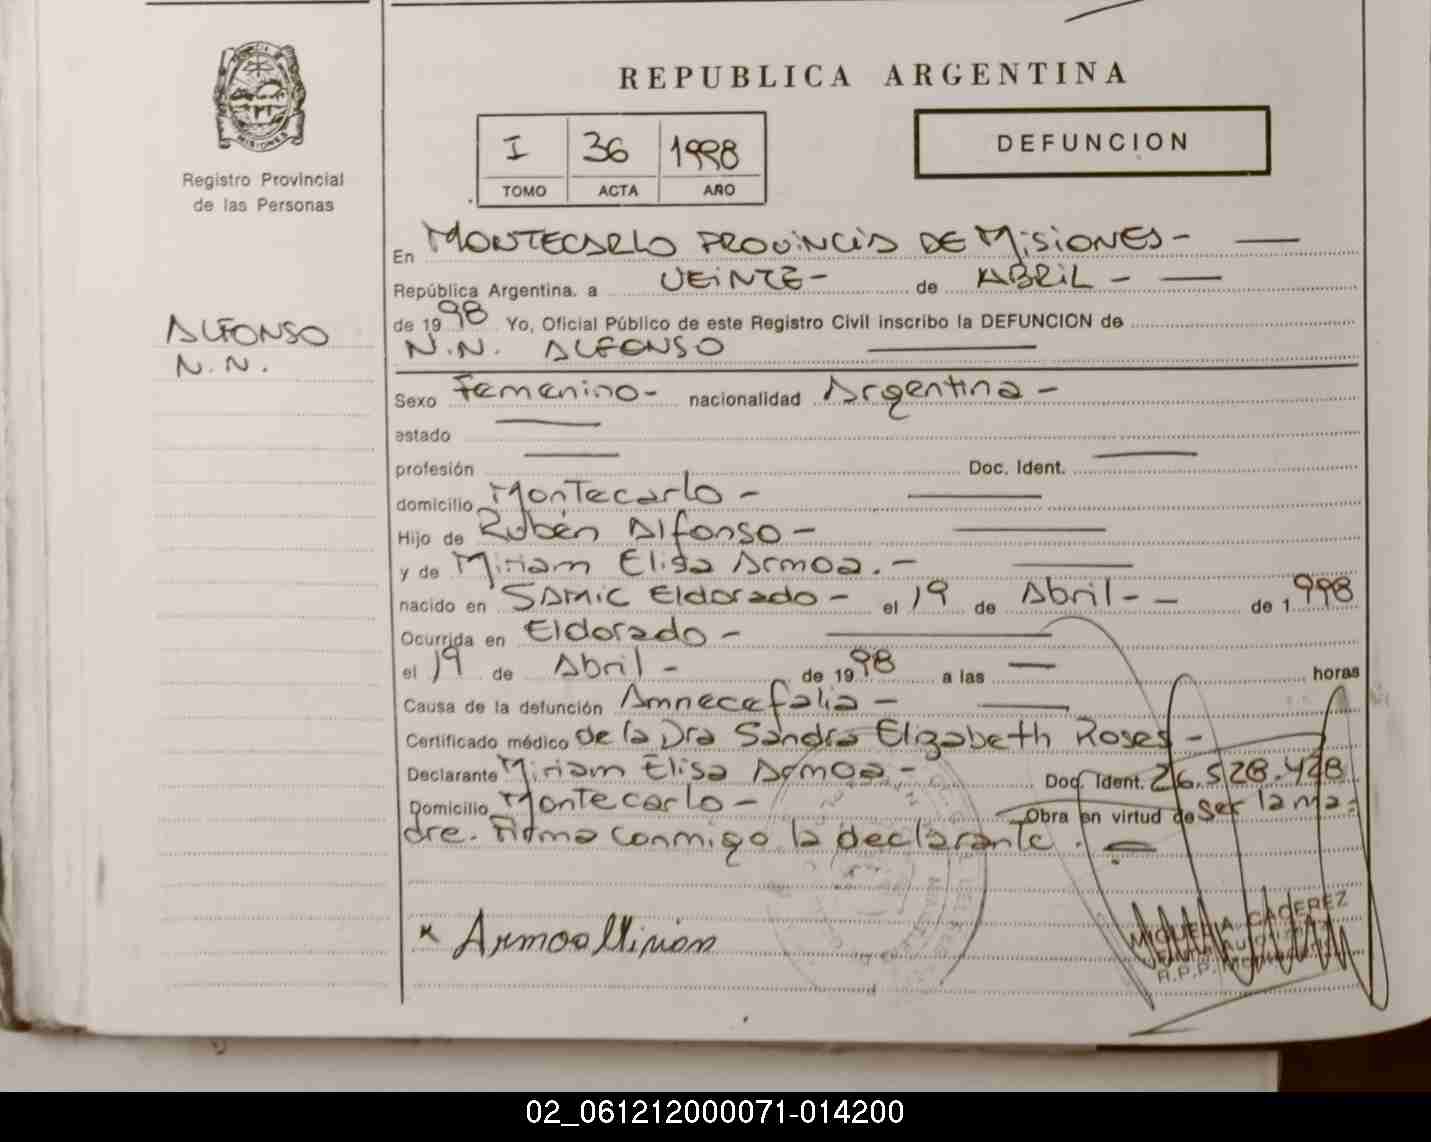 REPUBLICA ARGENTINA
MISIONES
Registro Provincial
de las Personas
I 36 1998
TOMO ACTA AÑO
DEFUNCION
En MONTECARLO PROVINCIA DE MISIONES -
República Argentina. a VEINTE - de ABRIL -
de 1998 Yo, Oficial Público de este Registro Civil inscribo la DEFUNCION de
N.N. ALFONSO
ALFONSO
N.N.
Sexo Femenino - nacionalidad Argentina -
estado
profesión Doc. Ident.
domicilio Montecarlo -
Hijo de Rubén Alfonso -
y de Miriam Elisa Armoa. -
nacido en SAMIC Eldorado - el 19 de Abril - - de 1998
Ocurrida en Eldorado -
el 19 de Abril - de 1998 a las horas
Causa de la defunción Amnecefalia -
Certificado médico de la Dra Sandra Elizabeth Roses -
Declarante Miriam Elisa Armoa - Doc. Ident. 26.528.428
Domicilio Montecarlo - Obra en virtud de ser la ma=
dre. Firma conmigo la declarante.
x Armoa Mirian
CACEREZ
02_061212000071-014200